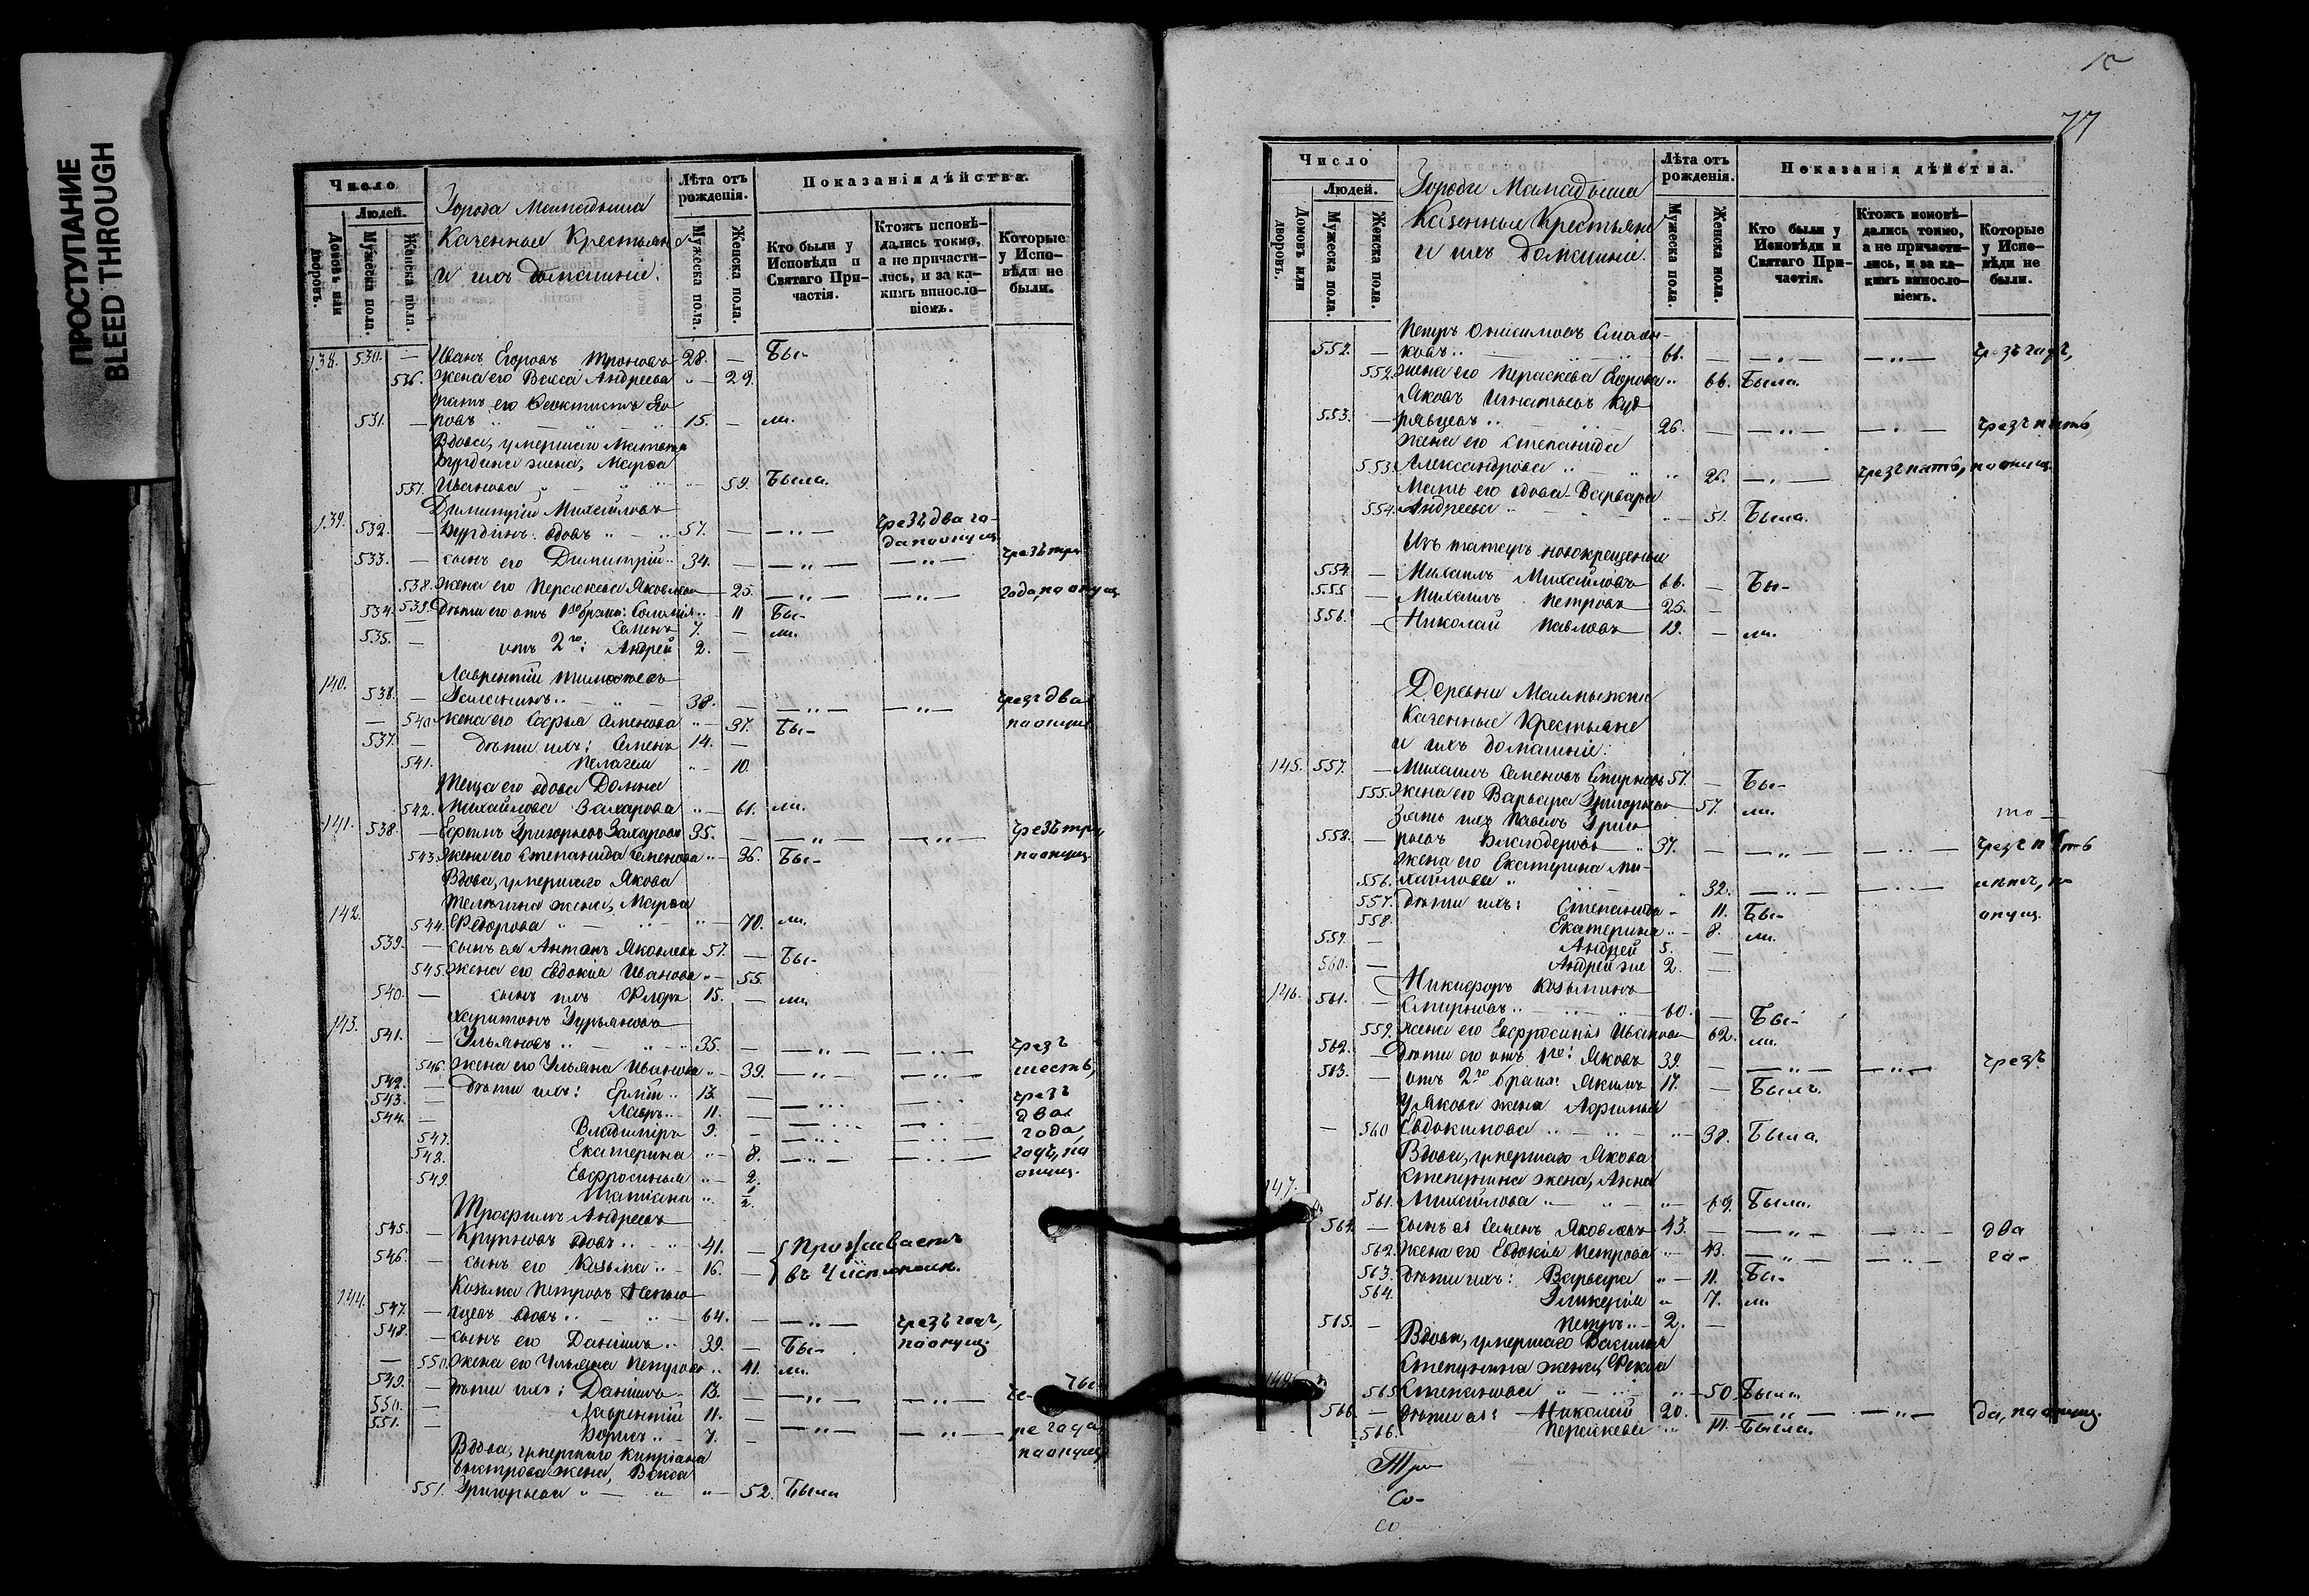 ПРОСТУПАНИЕ
BLEED THROUGH
Число
Людей.
Домовъ или дворовъ.
Мужеска пола.
Женска пола.
Города Мамадыша
Казенные Крестьяне
и ихъ домашніе.
Лѣта отъ рожденія.
Мужеска пола.
Женска пола.
Показанія дѣйства.
Кто были у Исповѣди и Святаго Причастія.
Ктожъ исповѣдались токмо, а не причастились, и за какимъ винословіемъ.
Которые у Исповѣди не были.
138. 530. — Иванъ Егоровъ 28. — Бы-
536. жена его Васса Андреева " — 29.
братъ его Феоктистъ Его-
531. — ровъ 15. — ли.
Вдова, умершаго Матвея
Бурдина жена, Марѳа
537. Иванова " — 59. Была.
Димитрій Михайловъ
139. 532. — Бурдинъ вдовъ 57. — — " — чрезъ два го-
да по опущ.
533. — сынъ его Димитрій 34. — — " — — " — чрезъ три
538. жена его Параскева Яковлева — 25. — " — — " — года, по опущ.
534. 539. Дѣти его отъ 1го брака: Соломія — 11 Бы-
Семенъ 7. — ли.
535. отъ 2го: Андрей 2. —
140. Лаврентій Тимоѳеевъ
538. — 38. — — " — — " — чрезъ два
— 540. жена его Софья Семенова " — 37. Бы- по опущ.
537. — дѣти ихъ: Семенъ 14. —
541. Пелагея " — 10.
Теща его вдова Домна
542. Михайлова Захарова " — 61. ли.
141. 538. — Ефимъ Григорьевъ Захаровъ 35. — — " — — " — чрезъ три
543. жена его Степанида Семенова " — 36. Бы- по опущ.
Вдова, умершаго Якова
Телѣгина жена, Марѳа
142. 544. Ѳедорова " — 70. ли.
539. — сынъ ея Антонъ Яковлевъ 57. — Бы-
545. жена его Евдокія Иванова " — 55.
540. — сынъ ихъ Флоръ 15. — ли.
143. Харитонъ Гурьяновъ
541. — Ульяновъ 35. — — " — — " — чрезъ
546. жена его Ульяна Иванова " — 39. — " — — " — шесть,
542. — дѣти ихъ: Ермій 13. — — " — чрезъ
543. — Лавръ 11. — — " — два
544. — Владиміръ 9. — — " — — " — года,
547. Екатерина " — 8. — " — — " — годъ, по
548. Евфросинья " — 2. опущ.
549. Татіана " 1/2.
Трофимъ Андреевъ
545. — Крупновъ вдовъ 41. — Проживаетъ
546. — сынъ его Козьма 16. — въ Чистополѣ.
144. Козьма Петровъ
547. — вдовъ 64. — — " — чрезъ годъ,
548. — сынъ его Даніилъ 39. — Бы- по опущ.
— 550. жена его Ульяна Петрова 41. ли.
549. — дѣти ихъ: Даніилъ 13. — — " — — " — че-
ты-
550. — Лаврентій 11. —
551. — Борисъ 7. — — " — — " — ре года
Вдова, умершаго Кипріана по опущ.
Быстрова жена, Васса
551. Григорьева " — " — 52. Была
77
Число
Людей.
Домовъ или дворовъ.
Мужеска пола.
Женска пола.
Города Мамадыша
Казенные Крестьяне
и ихъ домашніе.
Лѣта отъ рожденія.
Мужеска пола.
Женска пола.
Показанія дѣйства.
Кто были у Исповѣди и Святаго Причастія.
Ктожъ исповѣдались токмо, а не причастились, и за какимъ винословіемъ.
Которые у Исповѣди не были.
Петръ Онисимовъ
552. — ковъ 66. — — " — — " — чрезъ годъ,
552. жена его Параскева Егорова " 66. Была.
Яковъ Игнатьевъ Куд-
553. — рявцевъ 26. — — " — — " — чрезъ пять,
жена его Степанида
553. Александрова " 26. — " — чрезъ пять, по опущ.
Мать его вдова Варвара
554. Андреева " — 51. Была.
Изъ татаръ новокрещеные
554. — Михаилъ Михайловъ 66. — Бы-
555. — Михаилъ Петровъ 25. —
556. — Николай Павловъ 19. — ли.
Деревни
Казенные Крестьяне
и ихъ домашніе:
145. 557. — Михаилъ Семеновъ Смирновъ 57. — Бы-
555. жена его Варвара Григорьева 57. ли.
Зять ихъ Павелъ Григо-
558. — рьевъ 37. — — " — — " — чрезъ пять
жена его Екатерина Ми-
556. хайлова " 32. — " — — " — лѣтъ, по
557. дѣти ихъ: Степанида — 11. Бы- опущ.
558. Екатерина — 8. ли.
559. — Андрей 5. —
560. — Андрей же 2. —
146. Никифоръ Козьминъ
561. — Смирновъ 60. — Бы-
559. жена его Евфросинья Иванова 62. ли.
562. — дѣти его отъ 1го: Яковъ 39. — — " — — " — чрезъ
563. — отъ 2го брака: Якимъ 17. — Былъ.
У Якова жена Афимья
— 560 Евдокимова " — 38. Была.
Вдова, умершаго Якова
жена, Анна
147. 561. Михайлова " — 69. Была.
564. — сынъ ея Семенъ Яковлевъ 43. — — " — — " — два
562. жена его Евдокія Петрова " — 43. — " — — " — го-
563. дѣти ихъ: Варвара " — 11. Бы-
564. Гликерія " 7. ли
565. — Петръ 2. —
Вдова, умершаго Василья
жена, Ѳекла
148. 565. Степанова " — 50. Была.
566. — дѣти ея: Николай 20. — — " — — " — да, по опущ.
566. Параскева " 14. Была.